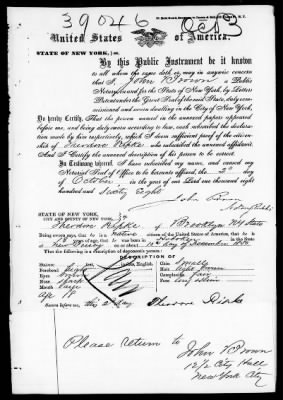 39046
Oct 3
United States of America.
STATE OF NEW YORK, } ss.
By this Public Instrument be it known
to all whom the same doth or may in anywise concern
that I, John Brown a Public
Notary, in and for the STATE OF NEW YORK, by Letters
Patent under the Great Seal of the said State, duly com-
missioned and sworn dwelling in the City of New York,
Do hereby Certify, That the person named in the annexed papers appeared
before me, and being duly sworn according to law, each subscribed the declara-
tion made by him respectively, which I deem sufficient proof of the citizen-
ship of Theodore Ripke who subscribed the annexed affidavit.
And I Certify the annexed description of his person to be correct.
In Testimony whereof, I have subscribed my name, and caused my
Notarial Seal of Office to be hereunto affixed, the 2d day
of October in the year of our Lord one thousand eight
hundred and Sixty Eight
John Brown
Notary Public
STATE OF NEW YORK,
CITY AND COUNTY OF NEW YORK, } ss.
Theodore Ripke of Brooklyn NY State
Being sworn, says that he is a native
years of age, that he was born in Hoboken in the State of
New Jersey on 12th day of December
DESCRIPTION OF
Eyes
Nose
Mouth large
Age 18
Chin Small
Hair Light brown
Complexion fair
Face
Sworn before me, this 2 day
Theodore Ripke
Please return to
John Brown
12/2 City Hall
New York City